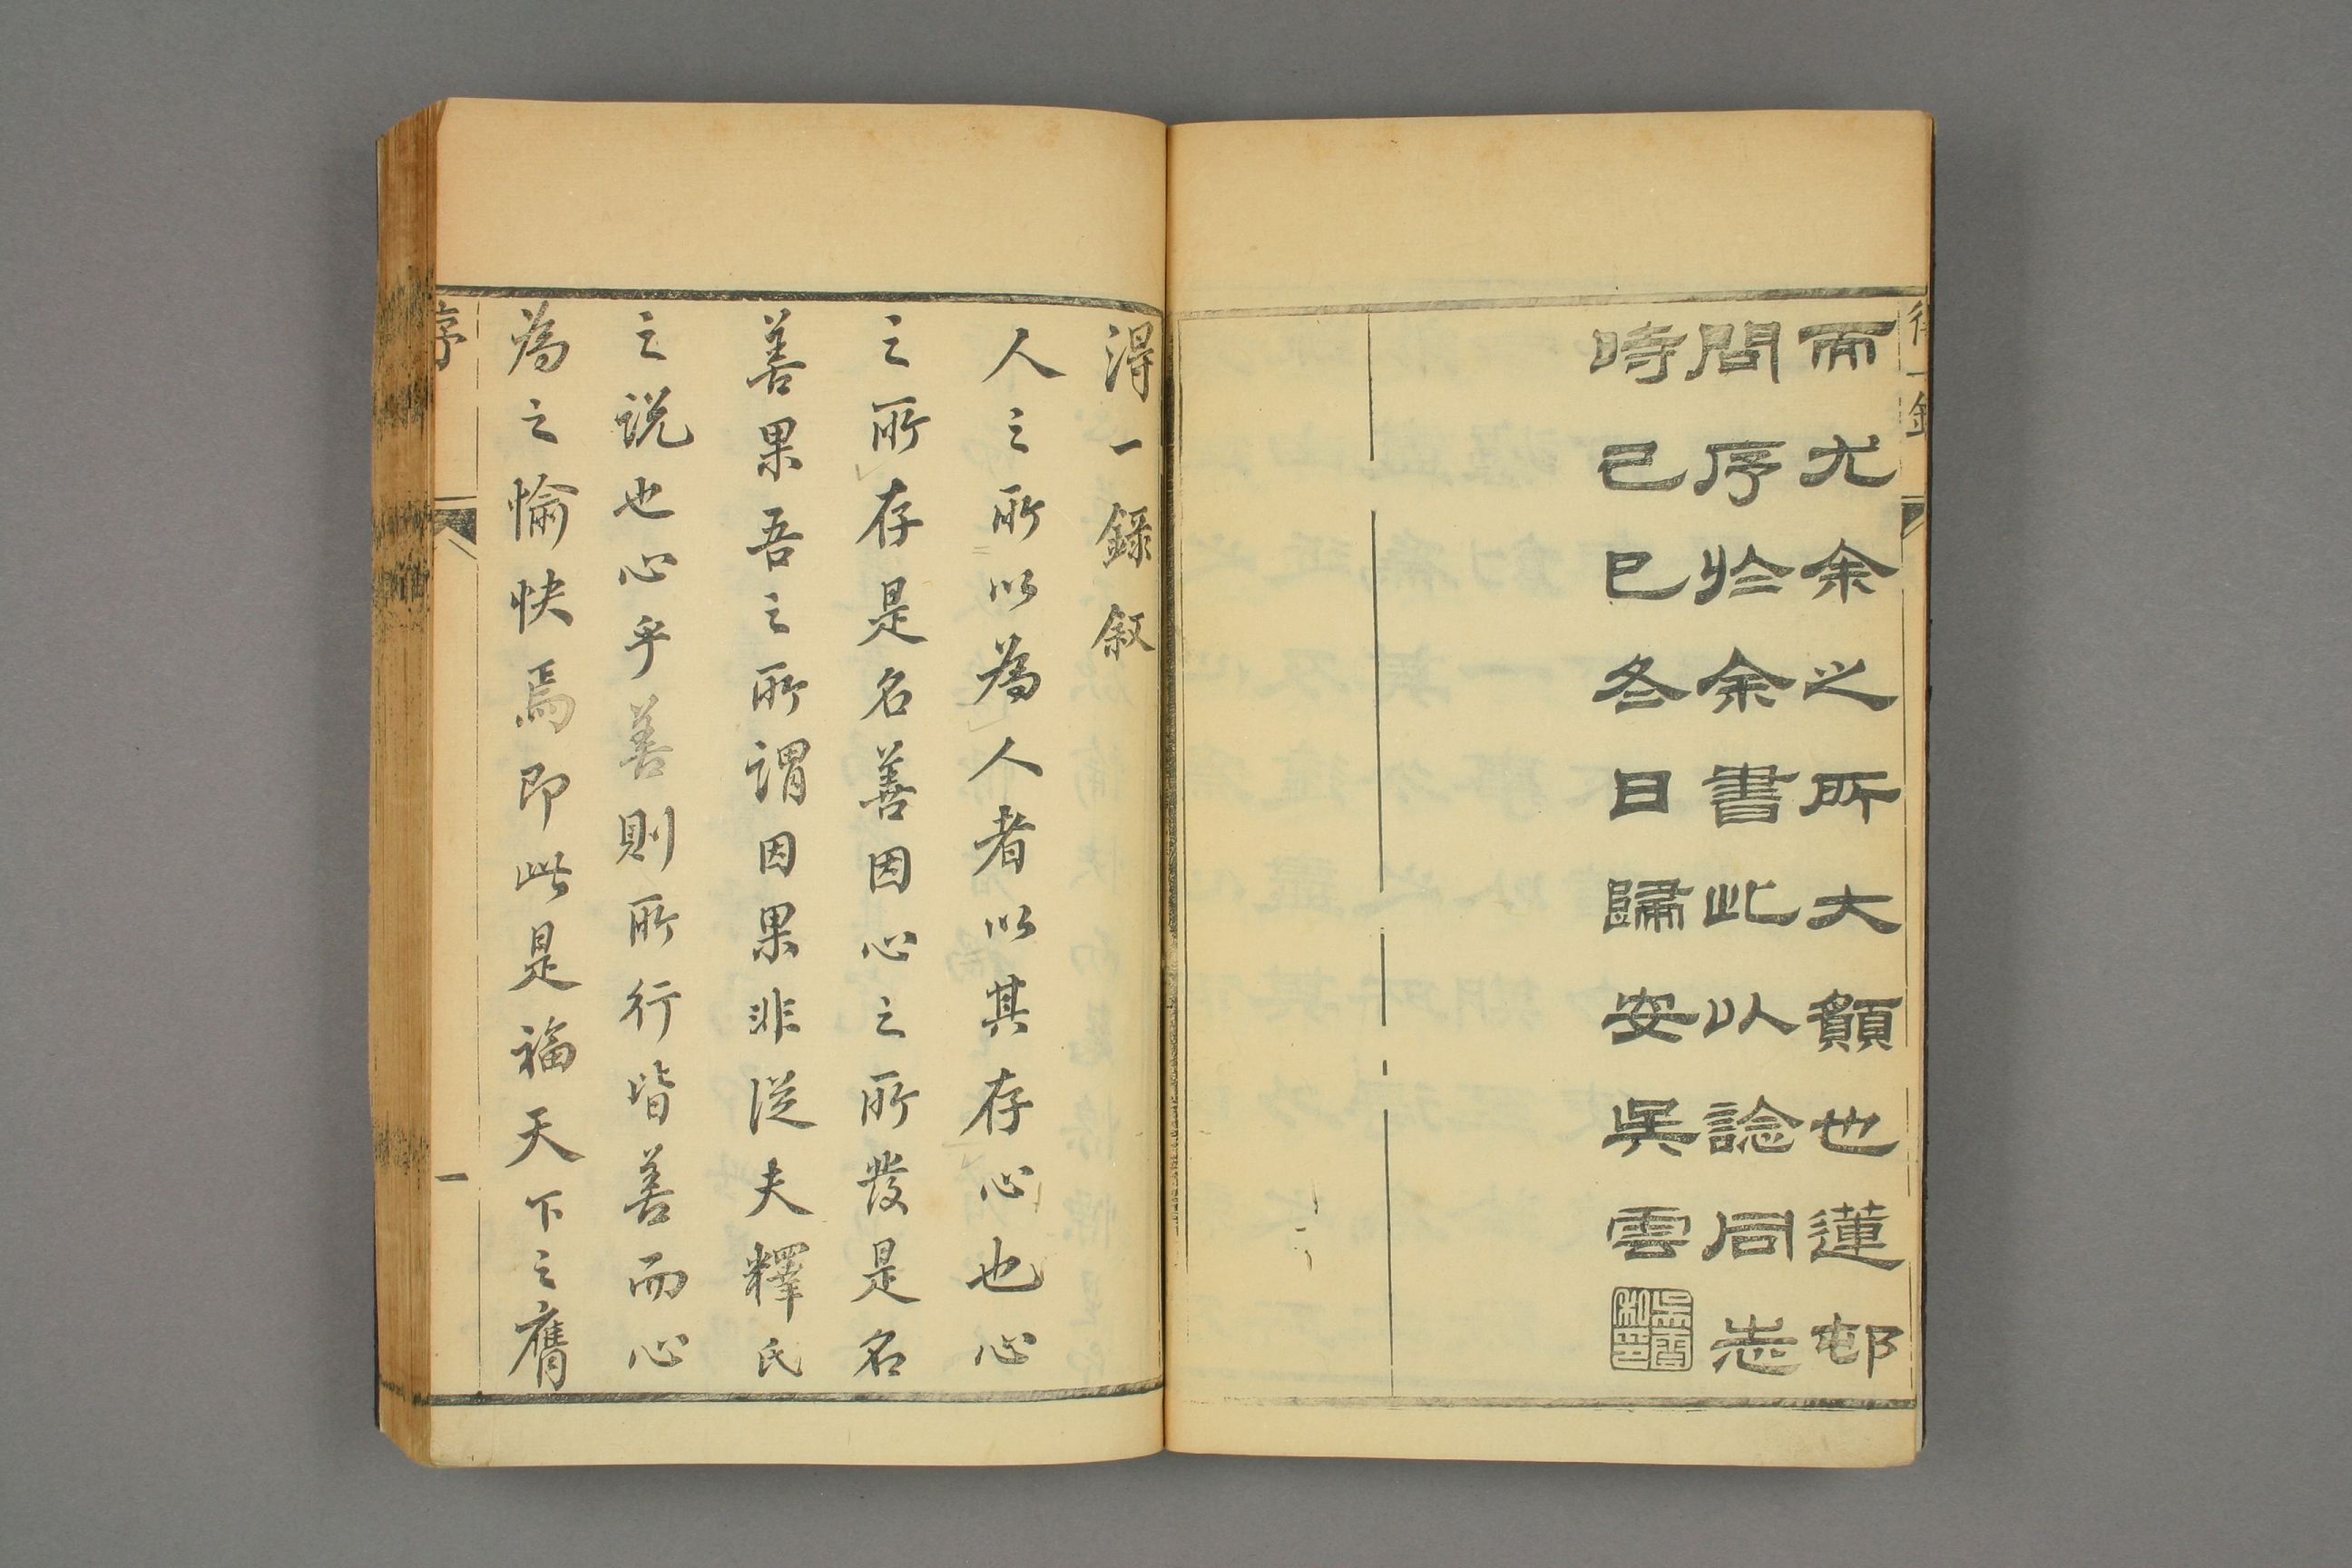 得一錄
而尤余之所大願也蓮邨
問序於余書此以諗同志
時己巳冬日歸安吳雲
得一錄敘
人之所以為人者以其存心也心
之所存是名善因心之所發是名
善果吾之所謂因果非從夫釋氏
之說也心乎善則所行皆善而心
為之愉快焉即此是福天下之膺
序
一